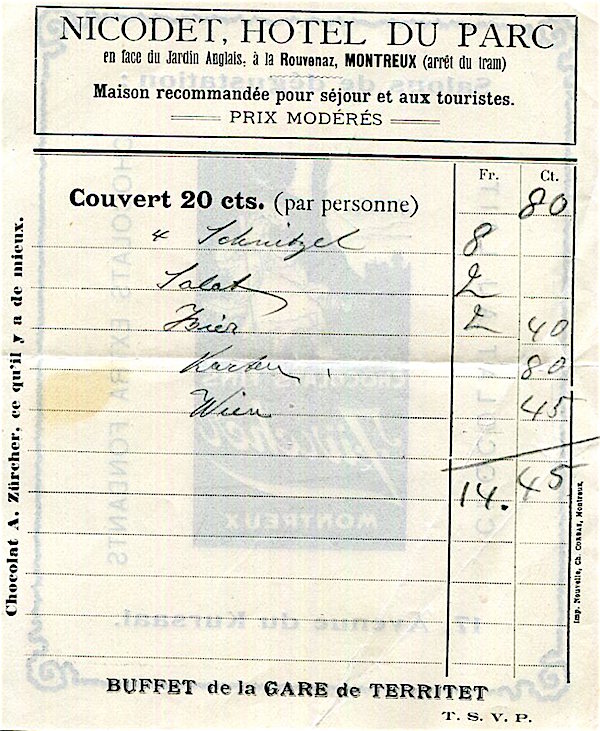 NICODET, HOTEL DU PARC
en face du Jardin Anglais, à la Rouvenaz, MONTREUX (arrêt du tram)
Maison recommandée pour séjour et aux touristes.
PRIX MODÉRÉS
Fr. Ct.
Couvert 20 cts. (par personne) 80
4 Schnitzel 8
Salat 2
Bier 2 40
Karten 80
Wien 45
14. 45
BUFFET de la GARE de TERRITET
T. S. V. P.
Chocolat A. Zürcher, ce qu'il y a de mieux.
Imp. Nouvelle, Ch. CORBAZ, Montreux.
Salons de dégustation
CHOCOLATS EXTRA FONDANTS
MONTREUX
17, Avenue du Kursaal